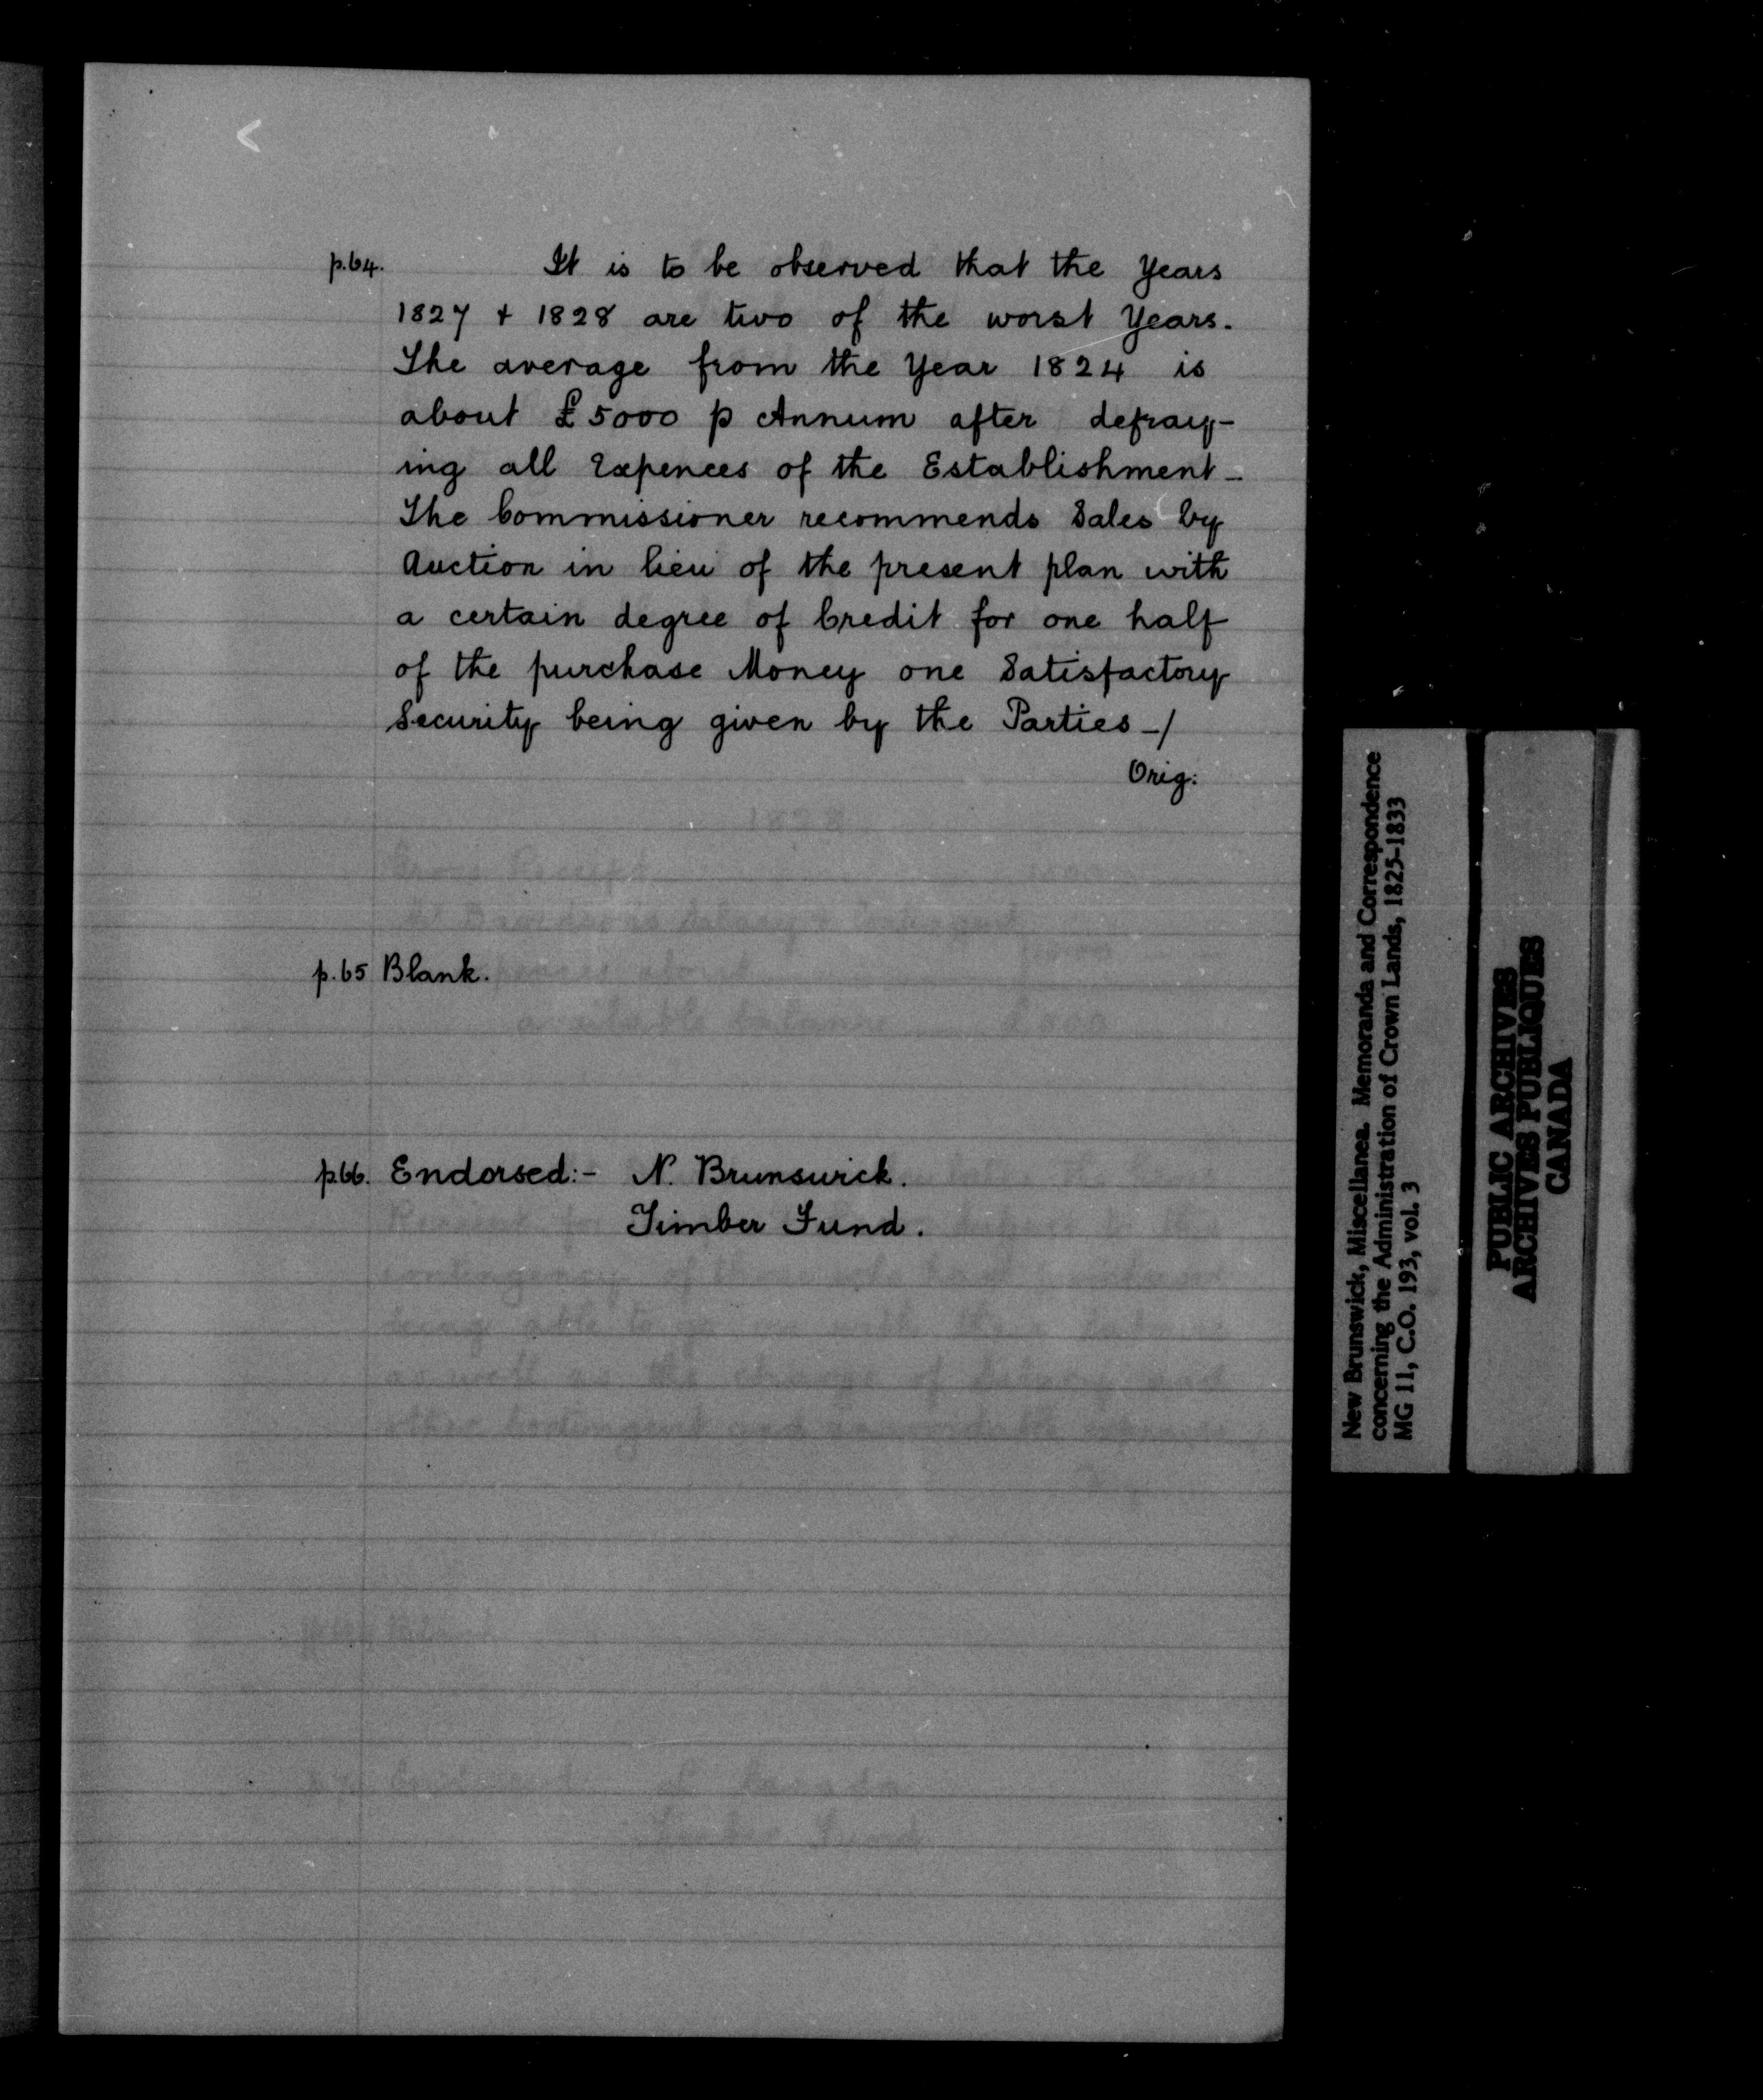 p.64. It is to be observed that the Years
1827 + 1828 are two of the worst Years.
The average from the Year 1824 is
about £5000 p Annum after defray-
ing all Expences of the Establishment -
The Commissioner recommends Sales by
Auction in lieu of the present plan with
a certain degree of Credit for one half
of the purchase Money one Satisfactory
Security being given by the Parties -/
Orig:
p.65 Blank.
p.66. Endorsed:- N. Brunswick.
Timber Fund.
New Brunswick, Miscellanea. Memoranda and Correspondence
concerning the Administration of Crown Lands, 1825-1833
MG 11, C.O. 193, vol. 3
PUBLIC ARCHIVES
ARCHIVES PUBLIQUES
CANADA